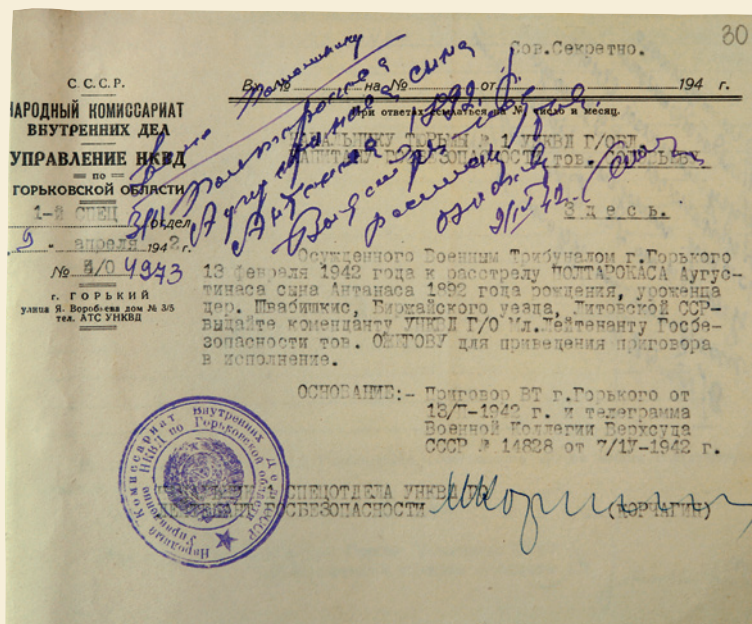 30
Сов.Секретно.
С.С.С.Р.
НАРОДНЫЙ КОМИССАРИАТ
ВНУТРЕННИХ ДЕЛ
УПРАВЛЕНИЕ НКВД
ПО
ГОРЬКОВСКОЙ ОБЛАСТИ
1-й СПЕЦ отдел
9 " апреля 1942 г.
№ 4973
г. ГОРЬКИЙ
улица Я. Воробьева дом № 3/5
тел. АТС УНКВД
На № на № от 194 г.
При ответах ссылаться на № число и месяц.
НАЧАЛЬНИКУ ТЮРЬМЫ № 1 УНКВД Г/ОБЛ
КАПИТАНУ ГОСБЕЗОПАСНОСТИ тов.
Полтарокаса
Августинаса сына
Антанаса 1892 г.
9/IV 42
Здесь.
Осужденного Военным Трибуналом г.Горького
13 февраля 1942 года к расстрелу ПОЛТАРОКАСА Аугус-
тинаса сына Антанаса 1892 года рождения, уроженца
дер. Швабишкис, Биржайского уезда, Литовской ССР-
выдайте коменданту УНКВД Г/О Мл.Лейтенанту Госбе-
зопасности тов. ОЖИГОВУ для приведения приговора
в исполнение.
ОСНОВАНИЕ:- Приговор ВТ г.Горького от
1942 г. и телеграмма
Военной Коллегии Верхсуда
СССР № 14828 от 7/1У-1942 г.
СПЕЦОТДЕЛА УНКВД ГО
ГОСБЕЗОПАСНОСТИ (КОРЧАГИН)
Народный Комиссариат Внутренних Дел СССР
Управление НКВД по Горьковской области